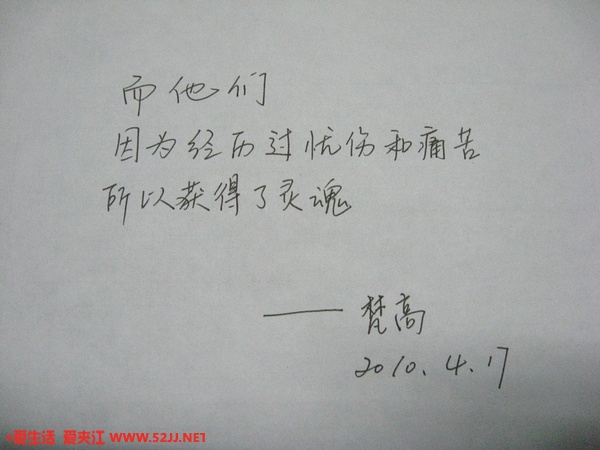 而他们
因为经历过忧伤和痛苦
所以获得了灵魂
——梵高
2010.4.17
爱生活 爱夹江 WWW.52JJ.NET